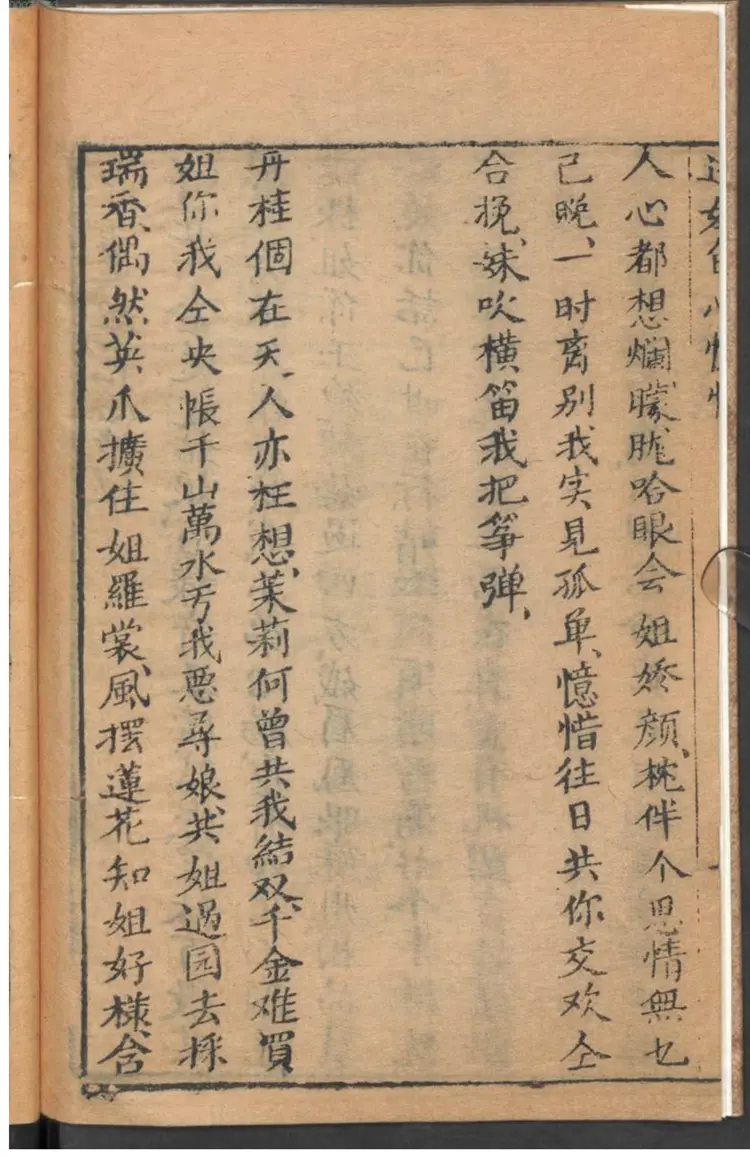 人心都想爛、矇胧哈眼会姐娇颜、枕伴个恩情無乜
己晚、一时离别我实見孤单、憶惜往日共你交欢仝
合挽、妹吹横笛我把筝弹、
丹桂個在天、人亦枉想、茉莉何曾共我結双、千金难買
姐你我仝央帳千山萬水亏我恶尋娘、共姐過园去採
瑞香、偶然英爪擴住姐羅裳、風摆蓮花知姐好樣、含